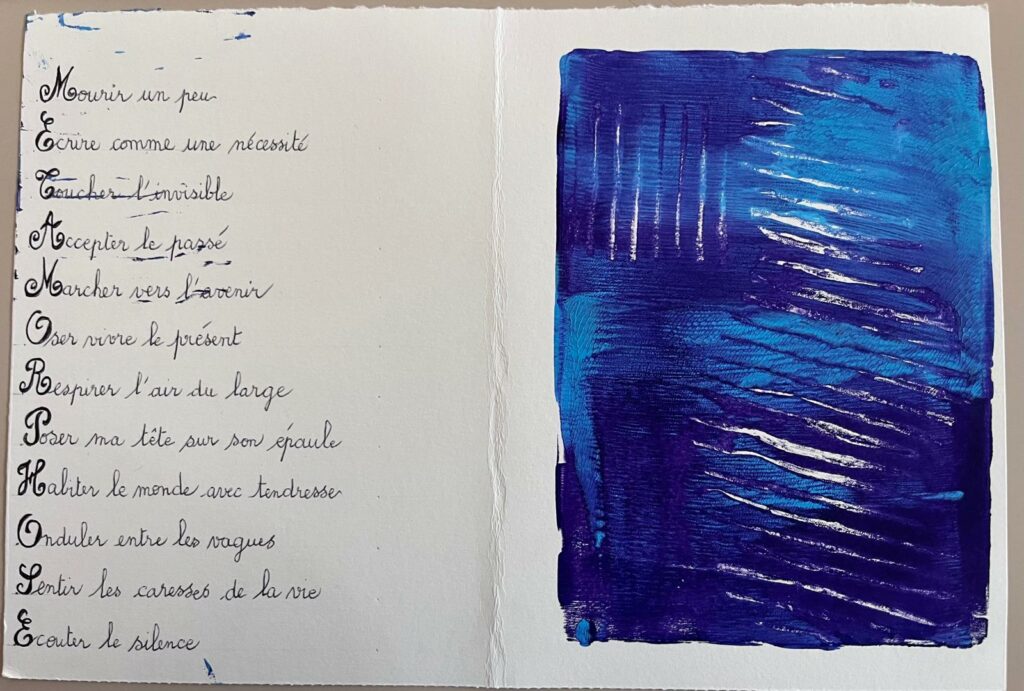 Mourir un peu
Ecrire comme une nécessité
Toucher l'invisible
Accepter le passé
Marcher vers l'avenir
Oser vivre le présent
Respirer l'air du large
Poser ma tête sur son épaule
Habiter le monde avec tendresse
Onduler entre les vagues
Sentir les caresses de la vie
Ecouter le silence